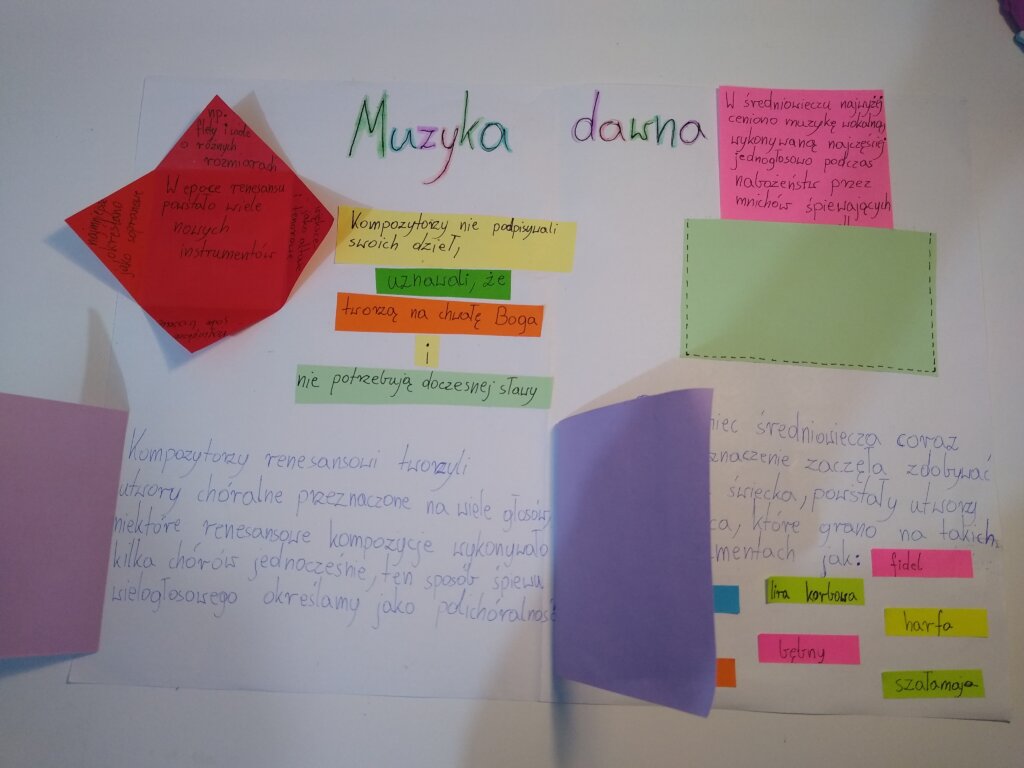 Muzyka dawna
np.
flety i inne
o różnych
rozmiarach
W epoce renesansu
powstało wiele
nowych
instrumentów
jako sopranowe
Kompozytorzy nie podpisywali
swoich dzieł,
uznawali, że
tworzą na chwałę Boga
i
nie potrzebują doczesnej sławy
W średniowieczu najwyżej
ceniono muzykę wokalną
wykonywaną najczęściej
jednogłosowo podczas
nabożeństw przez
mnichów śpiewających
Kompozytorzy renesansowi tworzyli
utwory chóralne przeznaczone na wiele głosów,
niektóre renesansowe kompozycje wykonywało
kilka chórów jednocześnie, ten sposób śpiewu
wielogłosowego określamy jako polichóralność
średniowiecza coraz
znaczenie zaczęła zdobywać
świecka, powstały utwory
które grano na takich
jak:
fidel
lira korbowa
harfa
bębny
szałamaja